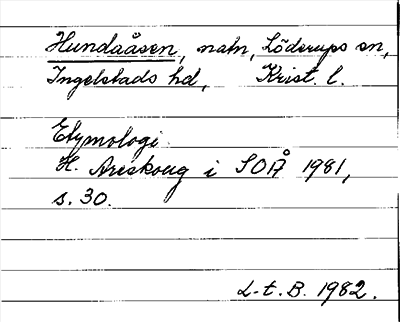 Hundaåsen, natn, Löderups sn,
Ingelstads hd, Krist. l.
Etymologi.
H. Areskoug i SOÅ 1981,
s. 30.
L-t. B. 1982.